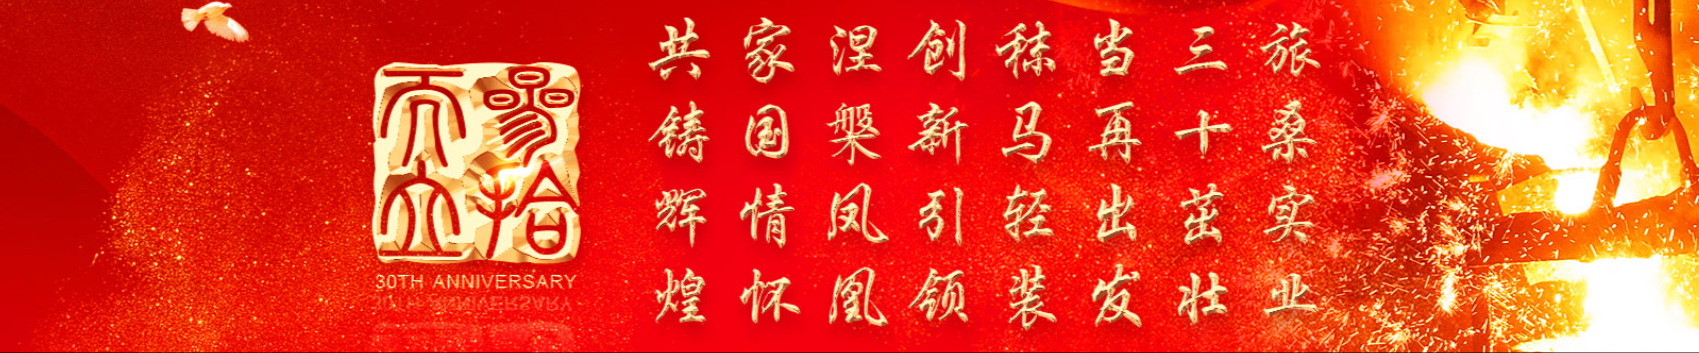 旅桑实业
三十茁壮
当再出发
秣马轻装
创新引领
涅槃凤凰
家国情怀
共铸辉煌
叁拾
而立
30TH ANNIVERSARY